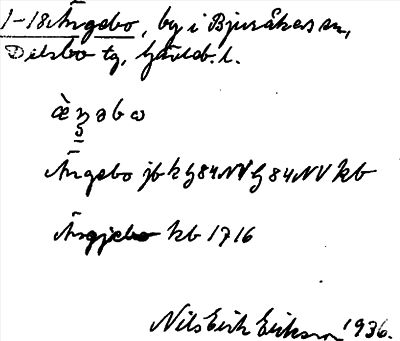 1-18 Ängebo, by i Bjuråkers sn,
Delsbo tg, Gävleb. l.
Ängebo jb kg 84 NV g 84 NV kb
Ängjebo kb 1716
Nils Erik Eriksson 1936.